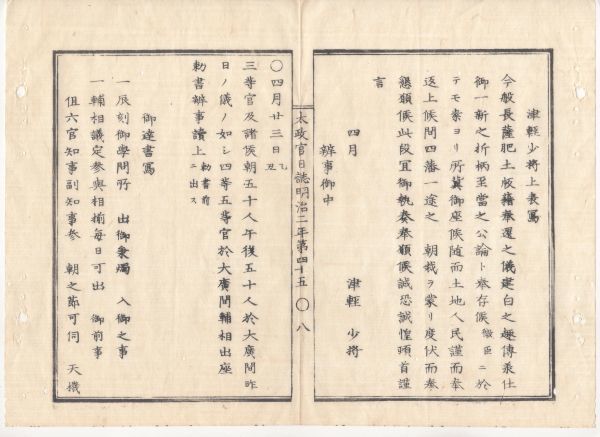 津輕少將上表寫
今般長薩肥土版籍奉還之儀建白之趣傳承仕
御一新之折柄至當之公論ト奉存候微臣ニ於
テモ素ヨリ所冀御座候随而土地人民謹而奉
返上候間四藩一途之 朝裁ヲ蒙リ度伏而奉
懇願候此段宜御執奏奉願候誠恐誠惶頓首謹
言
四月 津輕 少將
辨事御中
太政官日誌明治二年第四十五 〇 八
〇四月廿三日乙丑
三等官及諸侯朝五十人午後五十人於大廣間昨
日ノ儀ノ如シ四等五等官於大廣間輔相出座
勅書辨事讀上勅書前ニ出ス
御達書寫
一辰刻御學問所 出御秉燭 入御之事
一輔相議定參與相揃毎日可出 御前事
但六官知事副知事參 朝之節可伺 天機